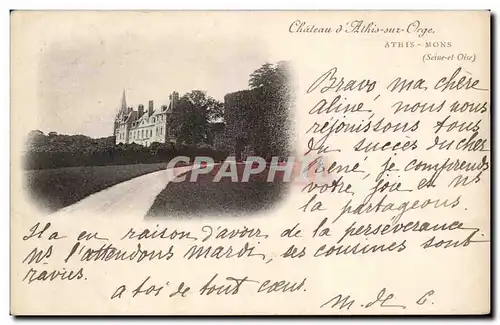 Château d'Athis-sur-Orge.
ATHIS - MONS
(Seine-et Oise)
Bravo ma chère
Aline, nous nous
réjouissons tous
du succès du cher
René, je comprends
votre joie en ns
la partageons.
Il a eu raison d'avoir de la persévérance,
ns l'attendons mardi, ses cousines sont
ravies.
a toi de tout cœur.
M. de C.
CPARAMA